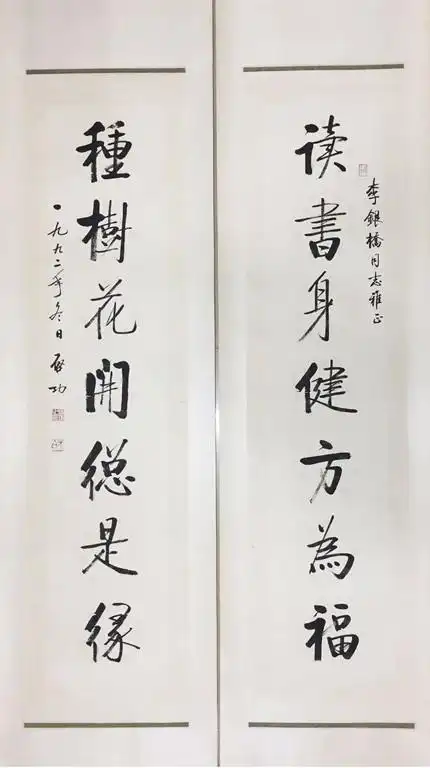 李銀橋同志雅正
读書身健方為福
種樹花開總是緣
一九九二年冬日 啓功